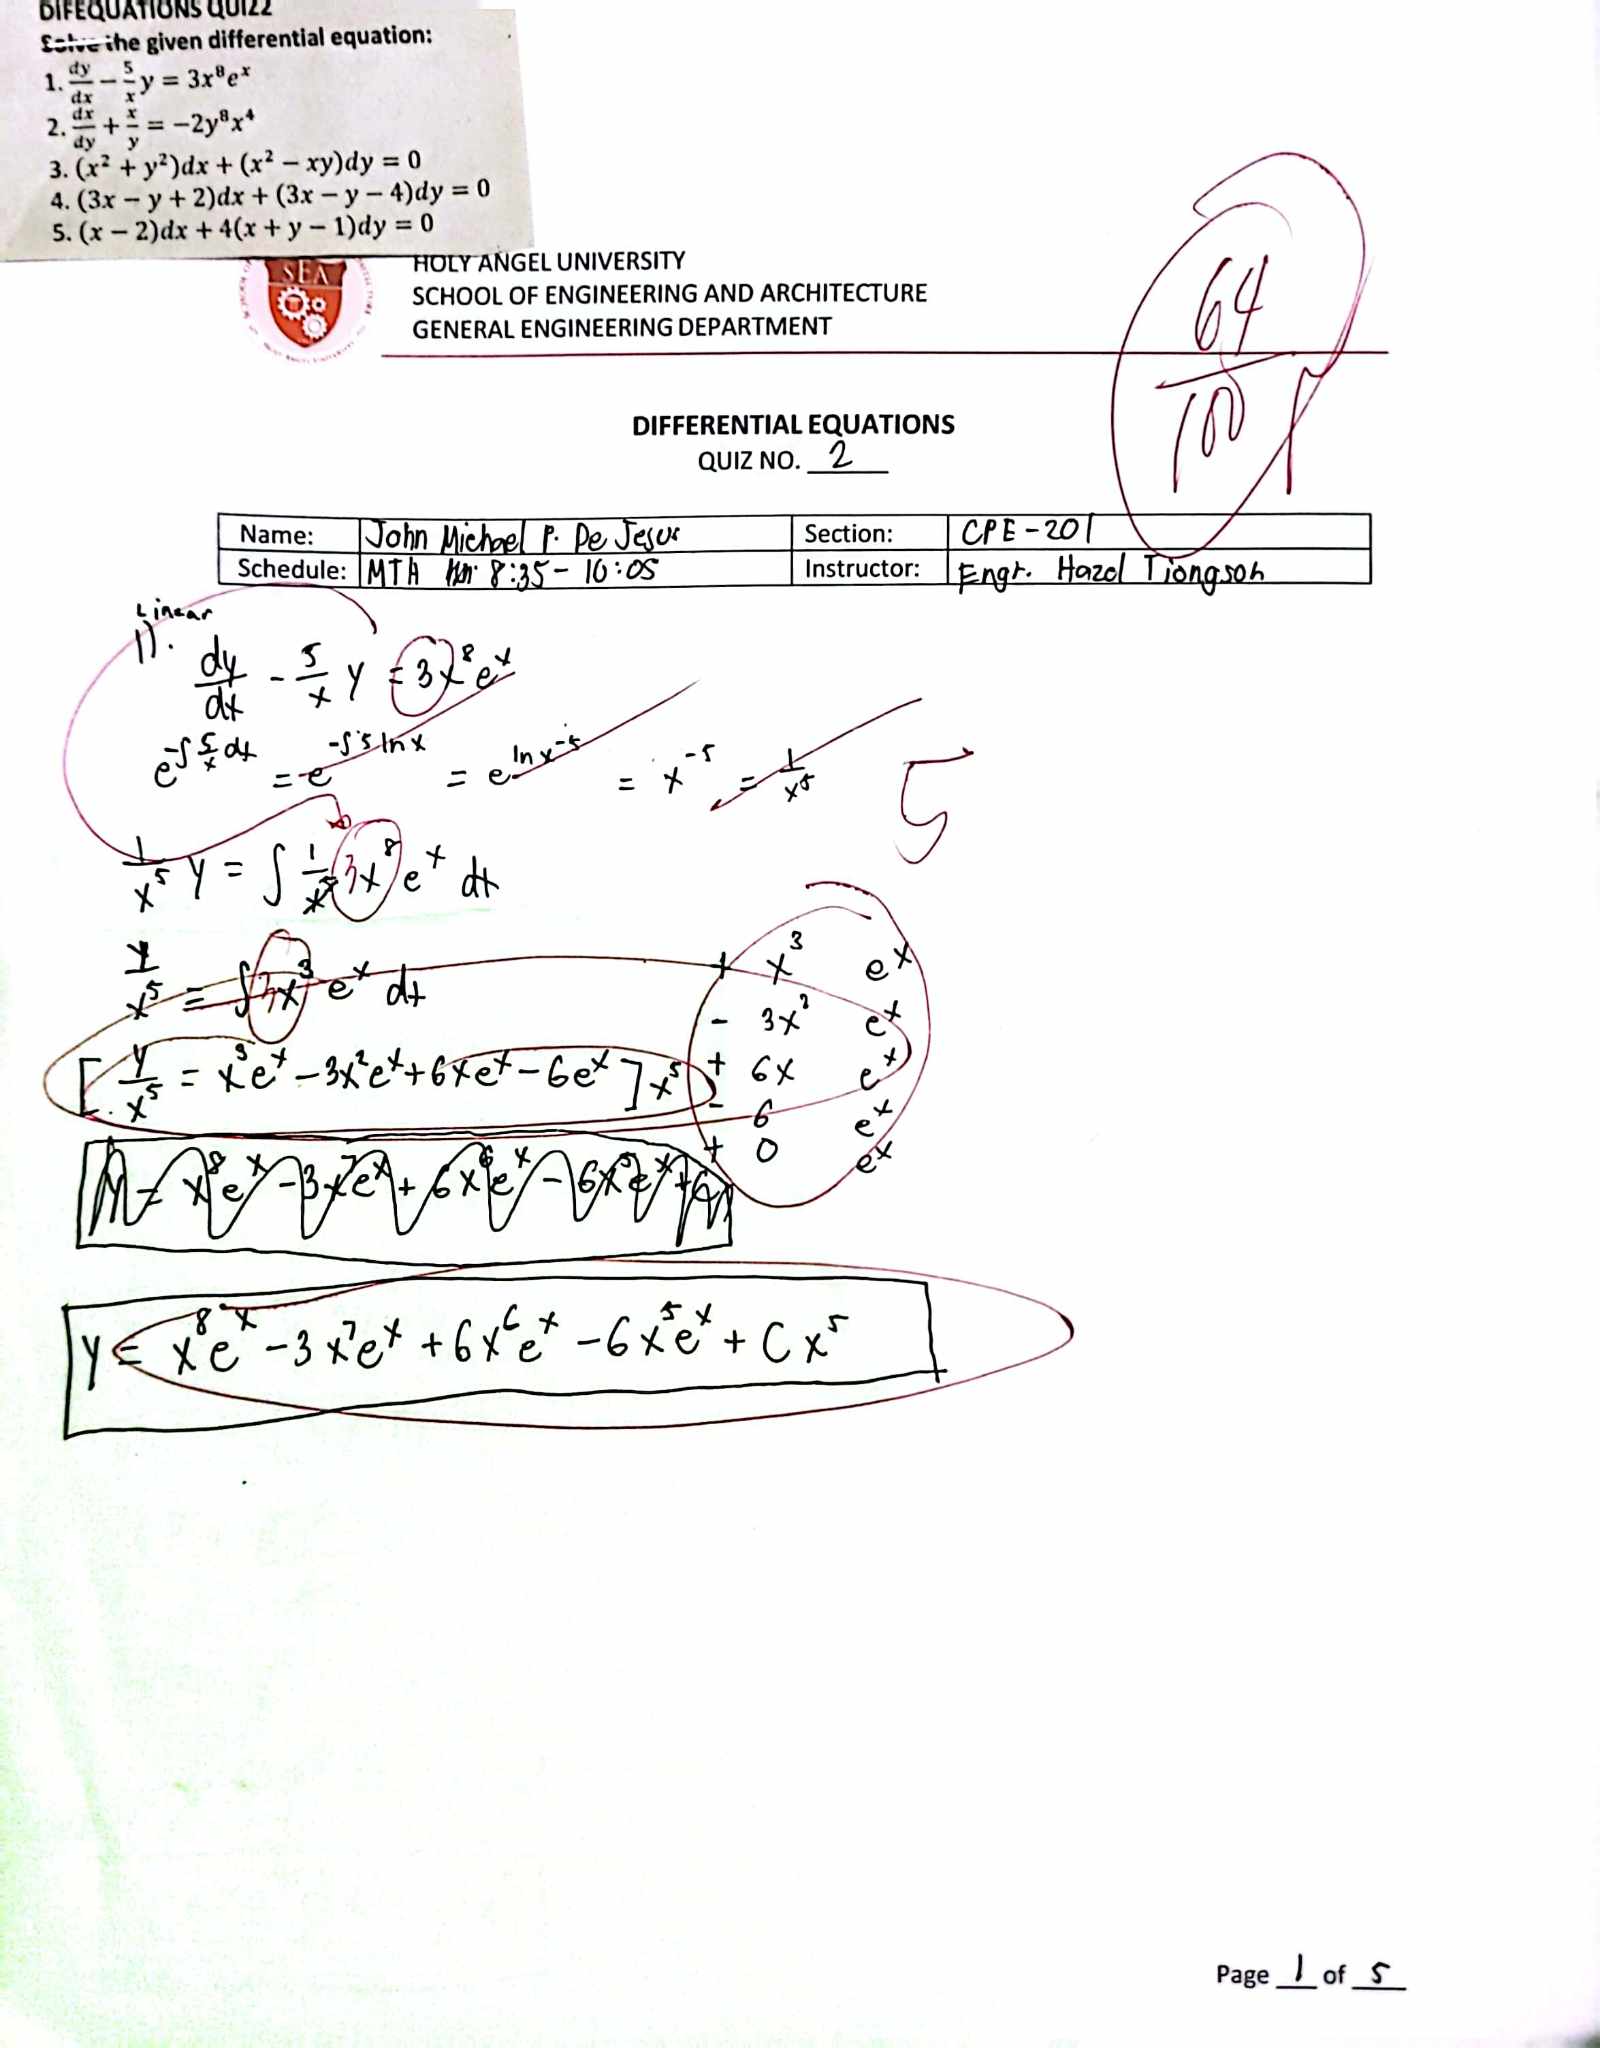 DIFEQUATIONS QUIZ2
Solve the given differential equation:
1. dy/dx − 5/x y = 3x⁸eˣ
2. dx/dy + x/y = −2y⁸x⁴
3. (x² + y²)dx + (x² − xy)dy = 0
4. (3x − y + 2)dx + (3x − y − 4)dy = 0
5. (x − 2)dx + 4(x + y − 1)dy = 0
SEA
HOLY ANGEL UNIVERSITY
SCHOOL OF ENGINEERING AND ARCHITECTURE
GENERAL ENGINEERING DEPARTMENT
64/100
DIFFERENTIAL EQUATIONS
QUIZ NO. 2
Name: John Michael P. De Jesus Section: CPE-201
Schedule: MTH 8:35-10:05 Instructor: Engr. Hazel Tiongson
Linear
1). dy/dx - 5/x y = 3x⁸eˣ
e^-∫5/x dx = e^-∫5 ln x = e^ln x⁻⁵ = x⁻⁵ = 1/x⁵
5
1/x⁵ y = ∫ 1/x⁵ 3x⁸ eˣ dx
y/x⁵ = ∫ 3x³ eˣ dx
+ x³ eˣ
- 3x² eˣ
+ 6x eˣ
- 6 eˣ
+ 0 eˣ
[ y/x⁵ = x³eˣ - 3x²eˣ + 6xeˣ - 6eˣ ] x⁵
y = x⁸eˣ - 3x⁷eˣ + 6x⁶eˣ - 6x⁵eˣ + C
y = x⁸eˣ - 3x⁷eˣ + 6x⁶eˣ - 6x⁵eˣ + Cx⁵
Page 1 of 5